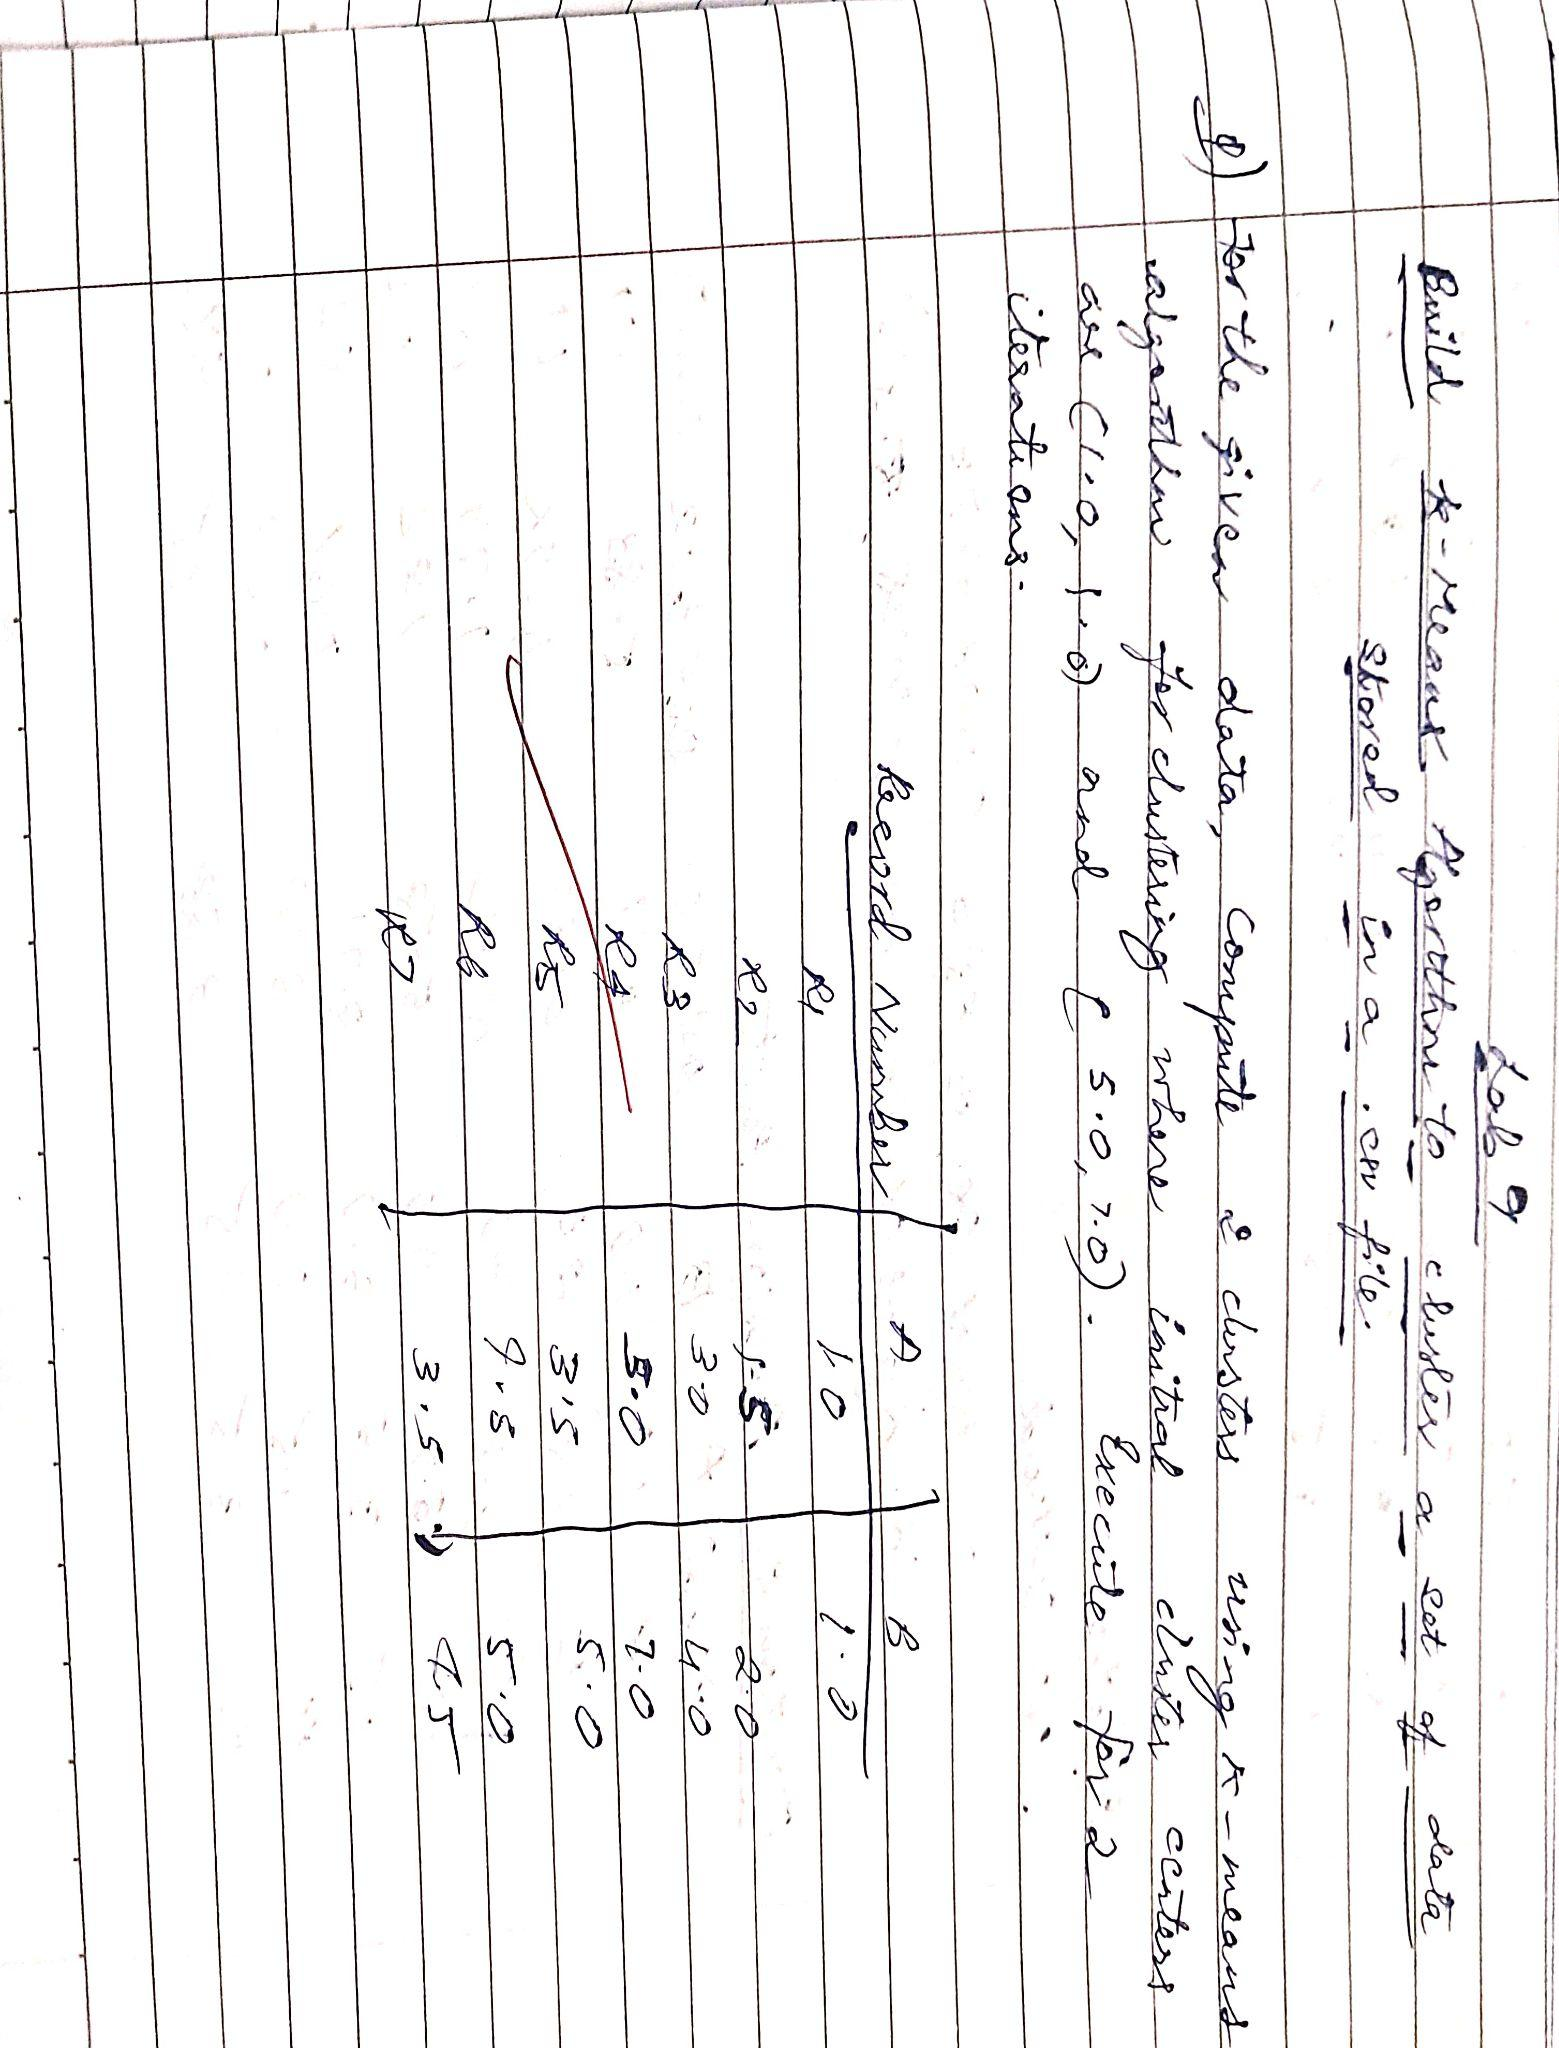 Lab 9
Build k-Means Algorithm to cluster a set of data
stored in a .csv file.
1) For the given data, Compute 2 clusters using k-means
algorithm for clustering where initial cluster centers
are (1.0, 1.0) and (5.0, 7.0). Execute for 2
iterations.
Record Number A B
R1 1.0 1.0
R2 1.5 2.0
R3 3.0 4.0
R4 5.0 7.0
R5 3.5 5.0
R6 4.5 5.0
R7 3.5 4.5